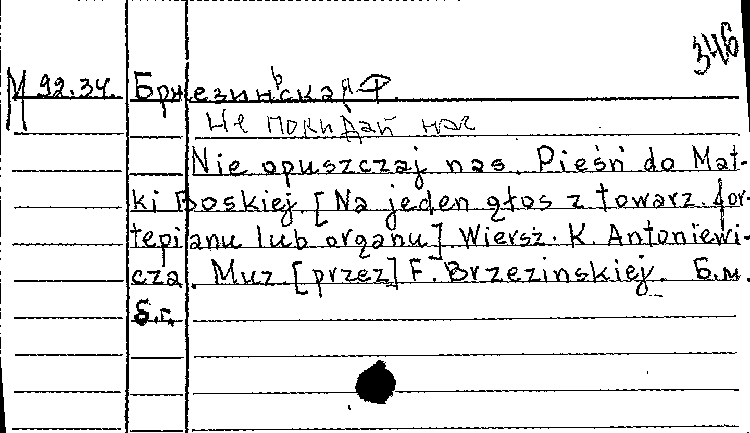 346
М 92.34. Бржезиньская Ф.
Не покидай нас
Nie opuszczaj nas. Pieśń do Mat-
ki Boskiej. [Na jeden głos z towarz. for-
tepianu lub organu]. Wiersz. K. Antoniewi-
cza. Muz. [przez] F. Brzezinskiej. Б.м.
Б.г.